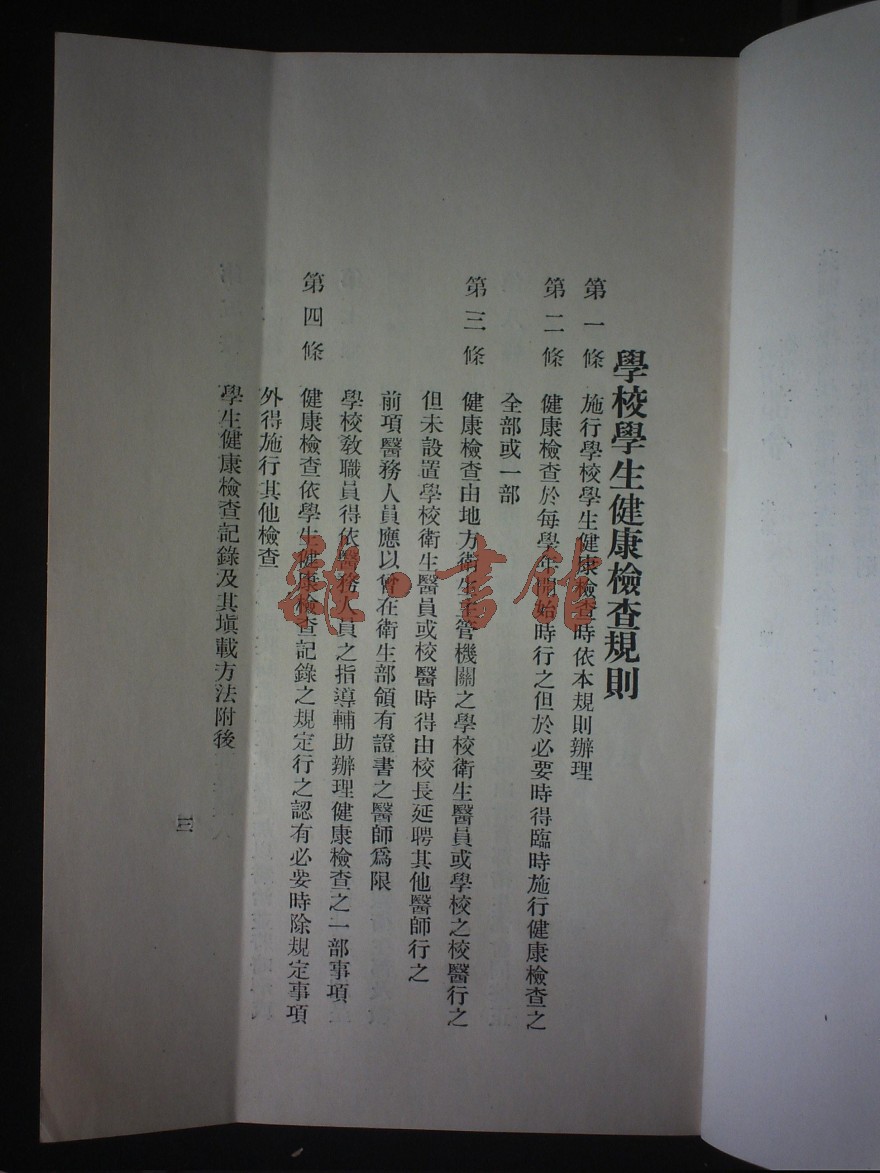 學校學生健康檢查規則
第一條 施行學校學生健康檢查時依本規則辦理
第二條 健康檢查於每學年開始時行之但於必要時得臨時施行健康檢查之
全部或一部
第三條 健康檢查由地方衛生主管機關之學校衛生醫員或學校之校醫行之
但未設置學校衛生醫員或校醫時得由校長延聘其他醫師行之
前項醫務人員應以曾在衛生部領有證書之醫師爲限
學校敎職員得依醫務人員之指導輔助辦理健康檢查之一部事項
第四條 健康檢查依學生健康檢查記錄之規定行之認有必要時除規定事項
外得施行其他檢查
學生健康檢查記錄及其塡載方法附後
三
書館